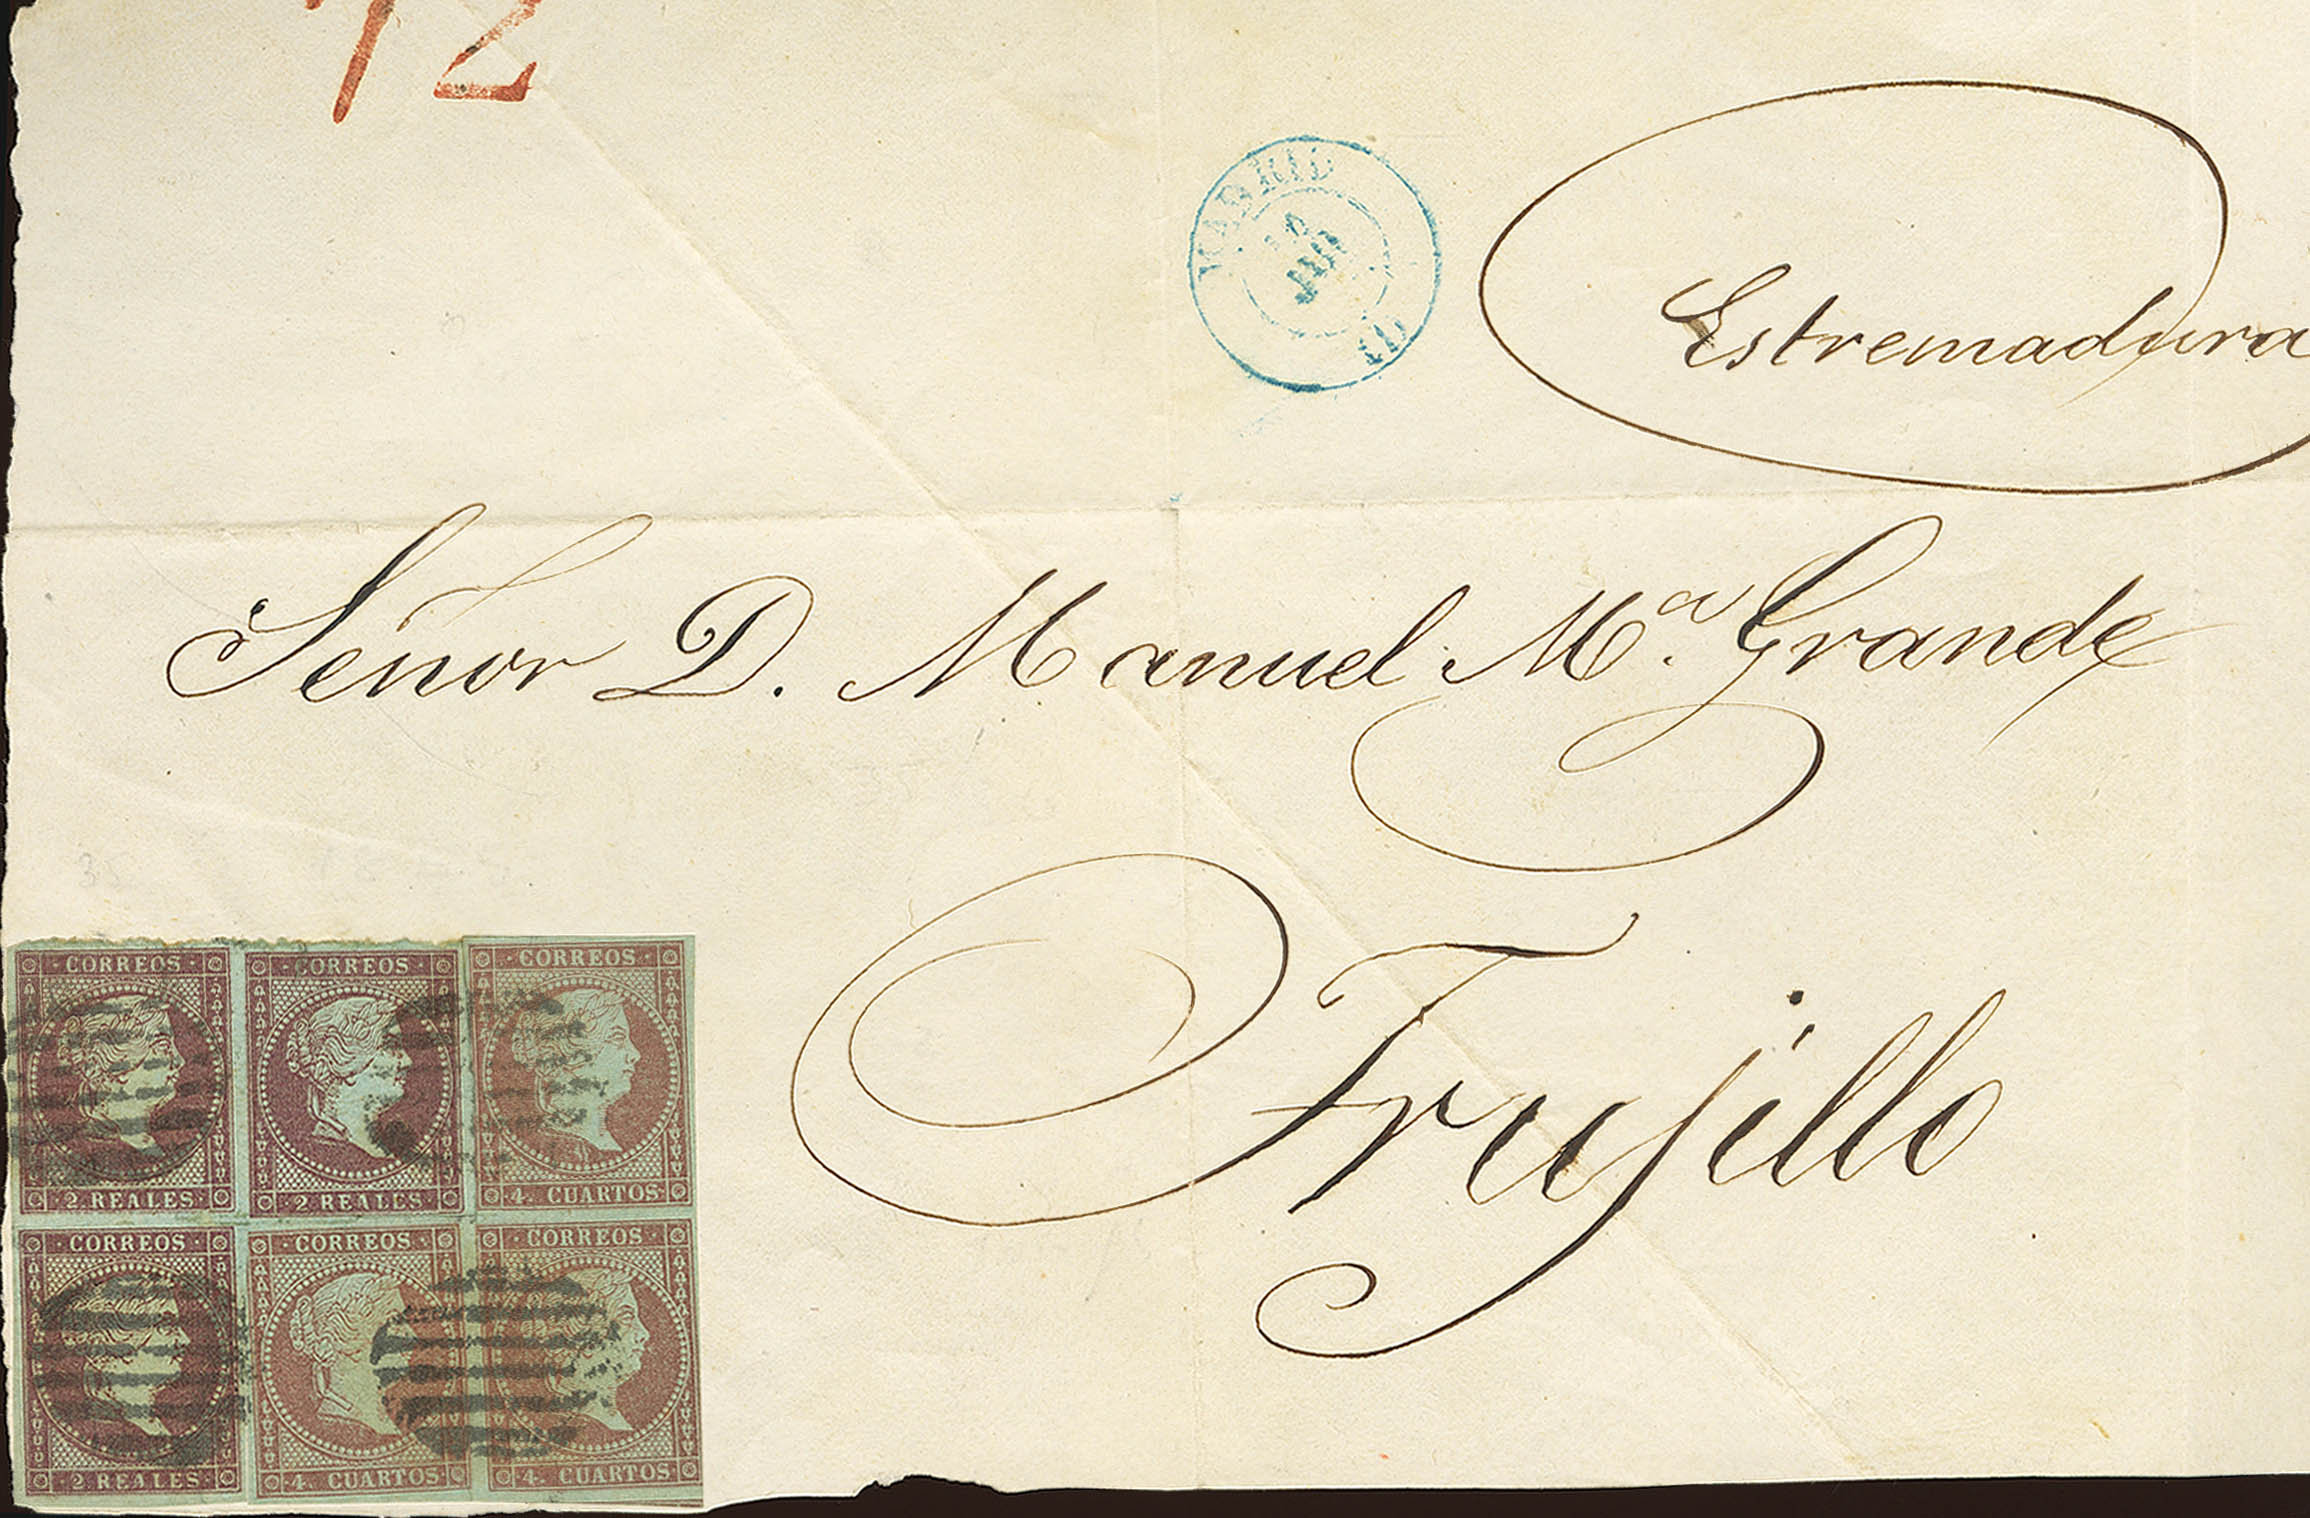 12
MADRID
Estremadura
Señor D. Manuel Mª. Grande
Trujillo
CORREOS CORREOS CORREOS
2 REALES 2 REALES 4. CUARTOS
CORREOS CORREOS CORREOS
2 REALES 4. CUARTOS 4. CUARTOS